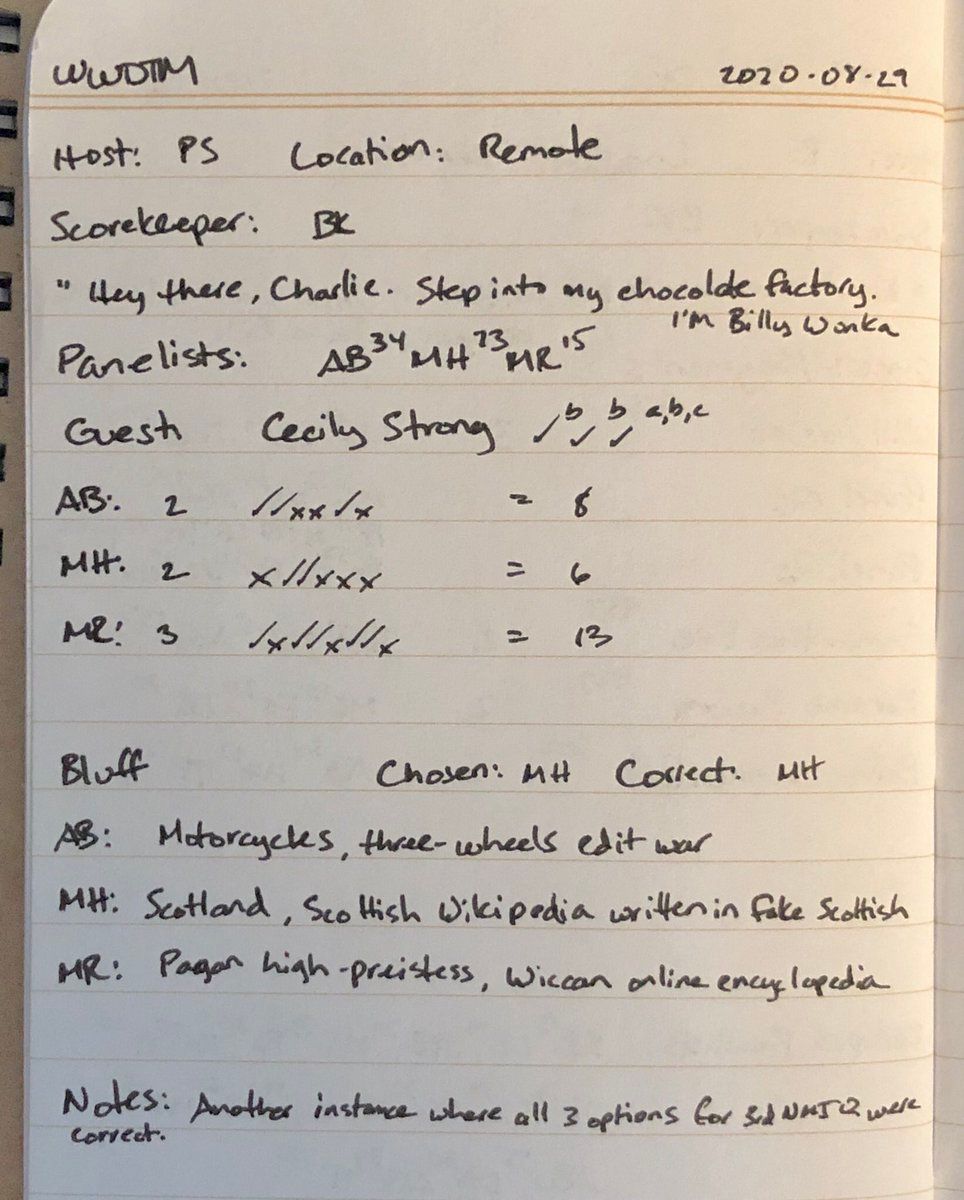 WWDTM 2020-08-29
Host: PS Location: Remote
Scorekeeper: BK
"Hey there, Charlie. Step into my chocolate factory.
I'm Billy Wonka
Panelists: AB34 MH73 MR15
Guest Cecily Strong ✓b ✓b ✓a,b,c
AB: 2 ✓✓xx✓x = 8
MH: 2 x✓✓xxx = 6
MR: 3 ✓x✓✓x✓✓x = 13
Bluff Chosen: MH Correct: MH
AB: Motorcycles, three-wheels edit war
MH: Scotland, Scottish Wikipedia written in fake Scottish
MR: Pagan high-preistess, Wiccan online encyclopedia
Notes: Another instance where all 3 options for 3rd NMJ Q were
correct.